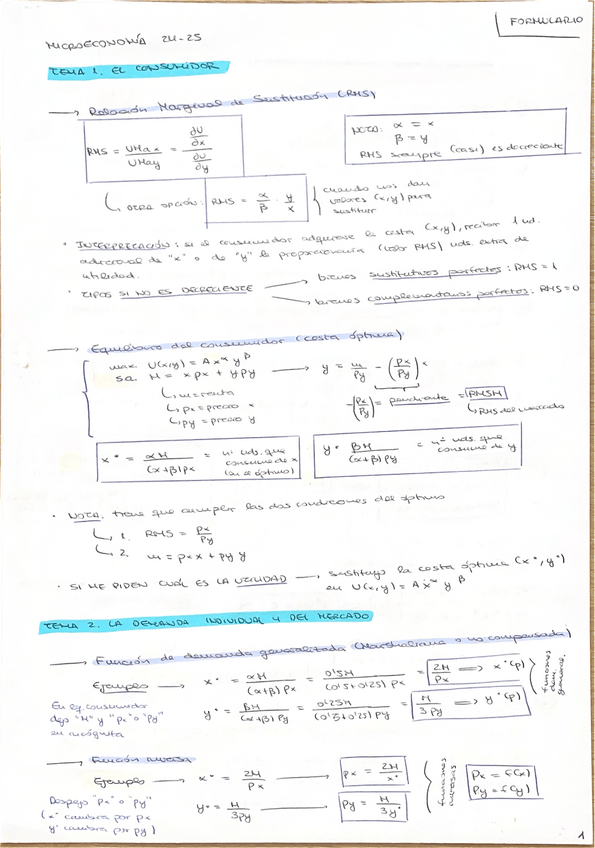 FORMULARIO
MICROECONOMÍA 24-25
TEMA 1. EL CONSUMIDOR
→ Relación Marginal de Sustitución (RMS)
RMS = UMax / UMay = (∂U/∂x) / (∂U/∂y)
NOTA: α = x
β = y
RMS siempre (casi) es decreciente
↳ OTRA OPCIÓN: RMS = α/β · y/x
cuando nos dan
valores (x,y) para
sustituir
· INTERPRETACIÓN: si el consumidor adquiriese la cesta (x,y), recibir 1 ud.
adicional de "x" o de "y" le proporcionaría (valor RMS) uds. extra de
utilidad.
· TIPOS SI NO ES DECRECIENTE → bienes sustitutivos perfectos: RMS = 1
→ bienes complementarios perfectos: RMS = 0
→ Equilibrio del consumidor (cesta óptima)
max. U(x,y) = A x^α y^β
s.a. M = x px + y py → y = m/Py - (Px/Py) x
↳ m = renta
↳ px = precio x
↳ py = precio y
-(Px/Py) = pendiente = RMSM
↳ RMS del mercado
x* = αM / (α+β)px = nº uds. que consume de x (en el óptimo)
y* βM / (α+β)py = nº uds. que consume de y
· NOTA. tiene que cumplir las dos condiciones del óptimo
↳ 1. RMS = px/py
↳ 2. m = px x + py y
· SI ME PIDEN CUÁL ES LA UTILIDAD → sustituyo la cesta óptima (x*, y*)
en U(x,y) = A x^α y^β
TEMA 2. LA DEMANDA INDIVIDUAL Y DEL MERCADO
→ Función de demanda generalizada (Marshaliana o no compensada)
Ejemplo → x* = αM / (α+β) Px = 0'5M / (0'5+0'25) Px = 2M / Px ⟹ x*(p)
En eq. consumidor
dejo "M" y "px" o "py"
en incógnita
y* = βM / (α+β) Py = 0'25M / (0'5+0'25) Py = M / 3Py ⟹ y*(p)
funciones
dem.
general.
→ Función inversa
Ejemplo → x* = 2M / Px → px = 2M / x*
Despejo "Px" o "Py"
(x* cambia por px
y* cambia por py)
y* = M / 3py → Py = M / 3y*
funciones
inversas
Px = f(x)
Py = f(y)
1